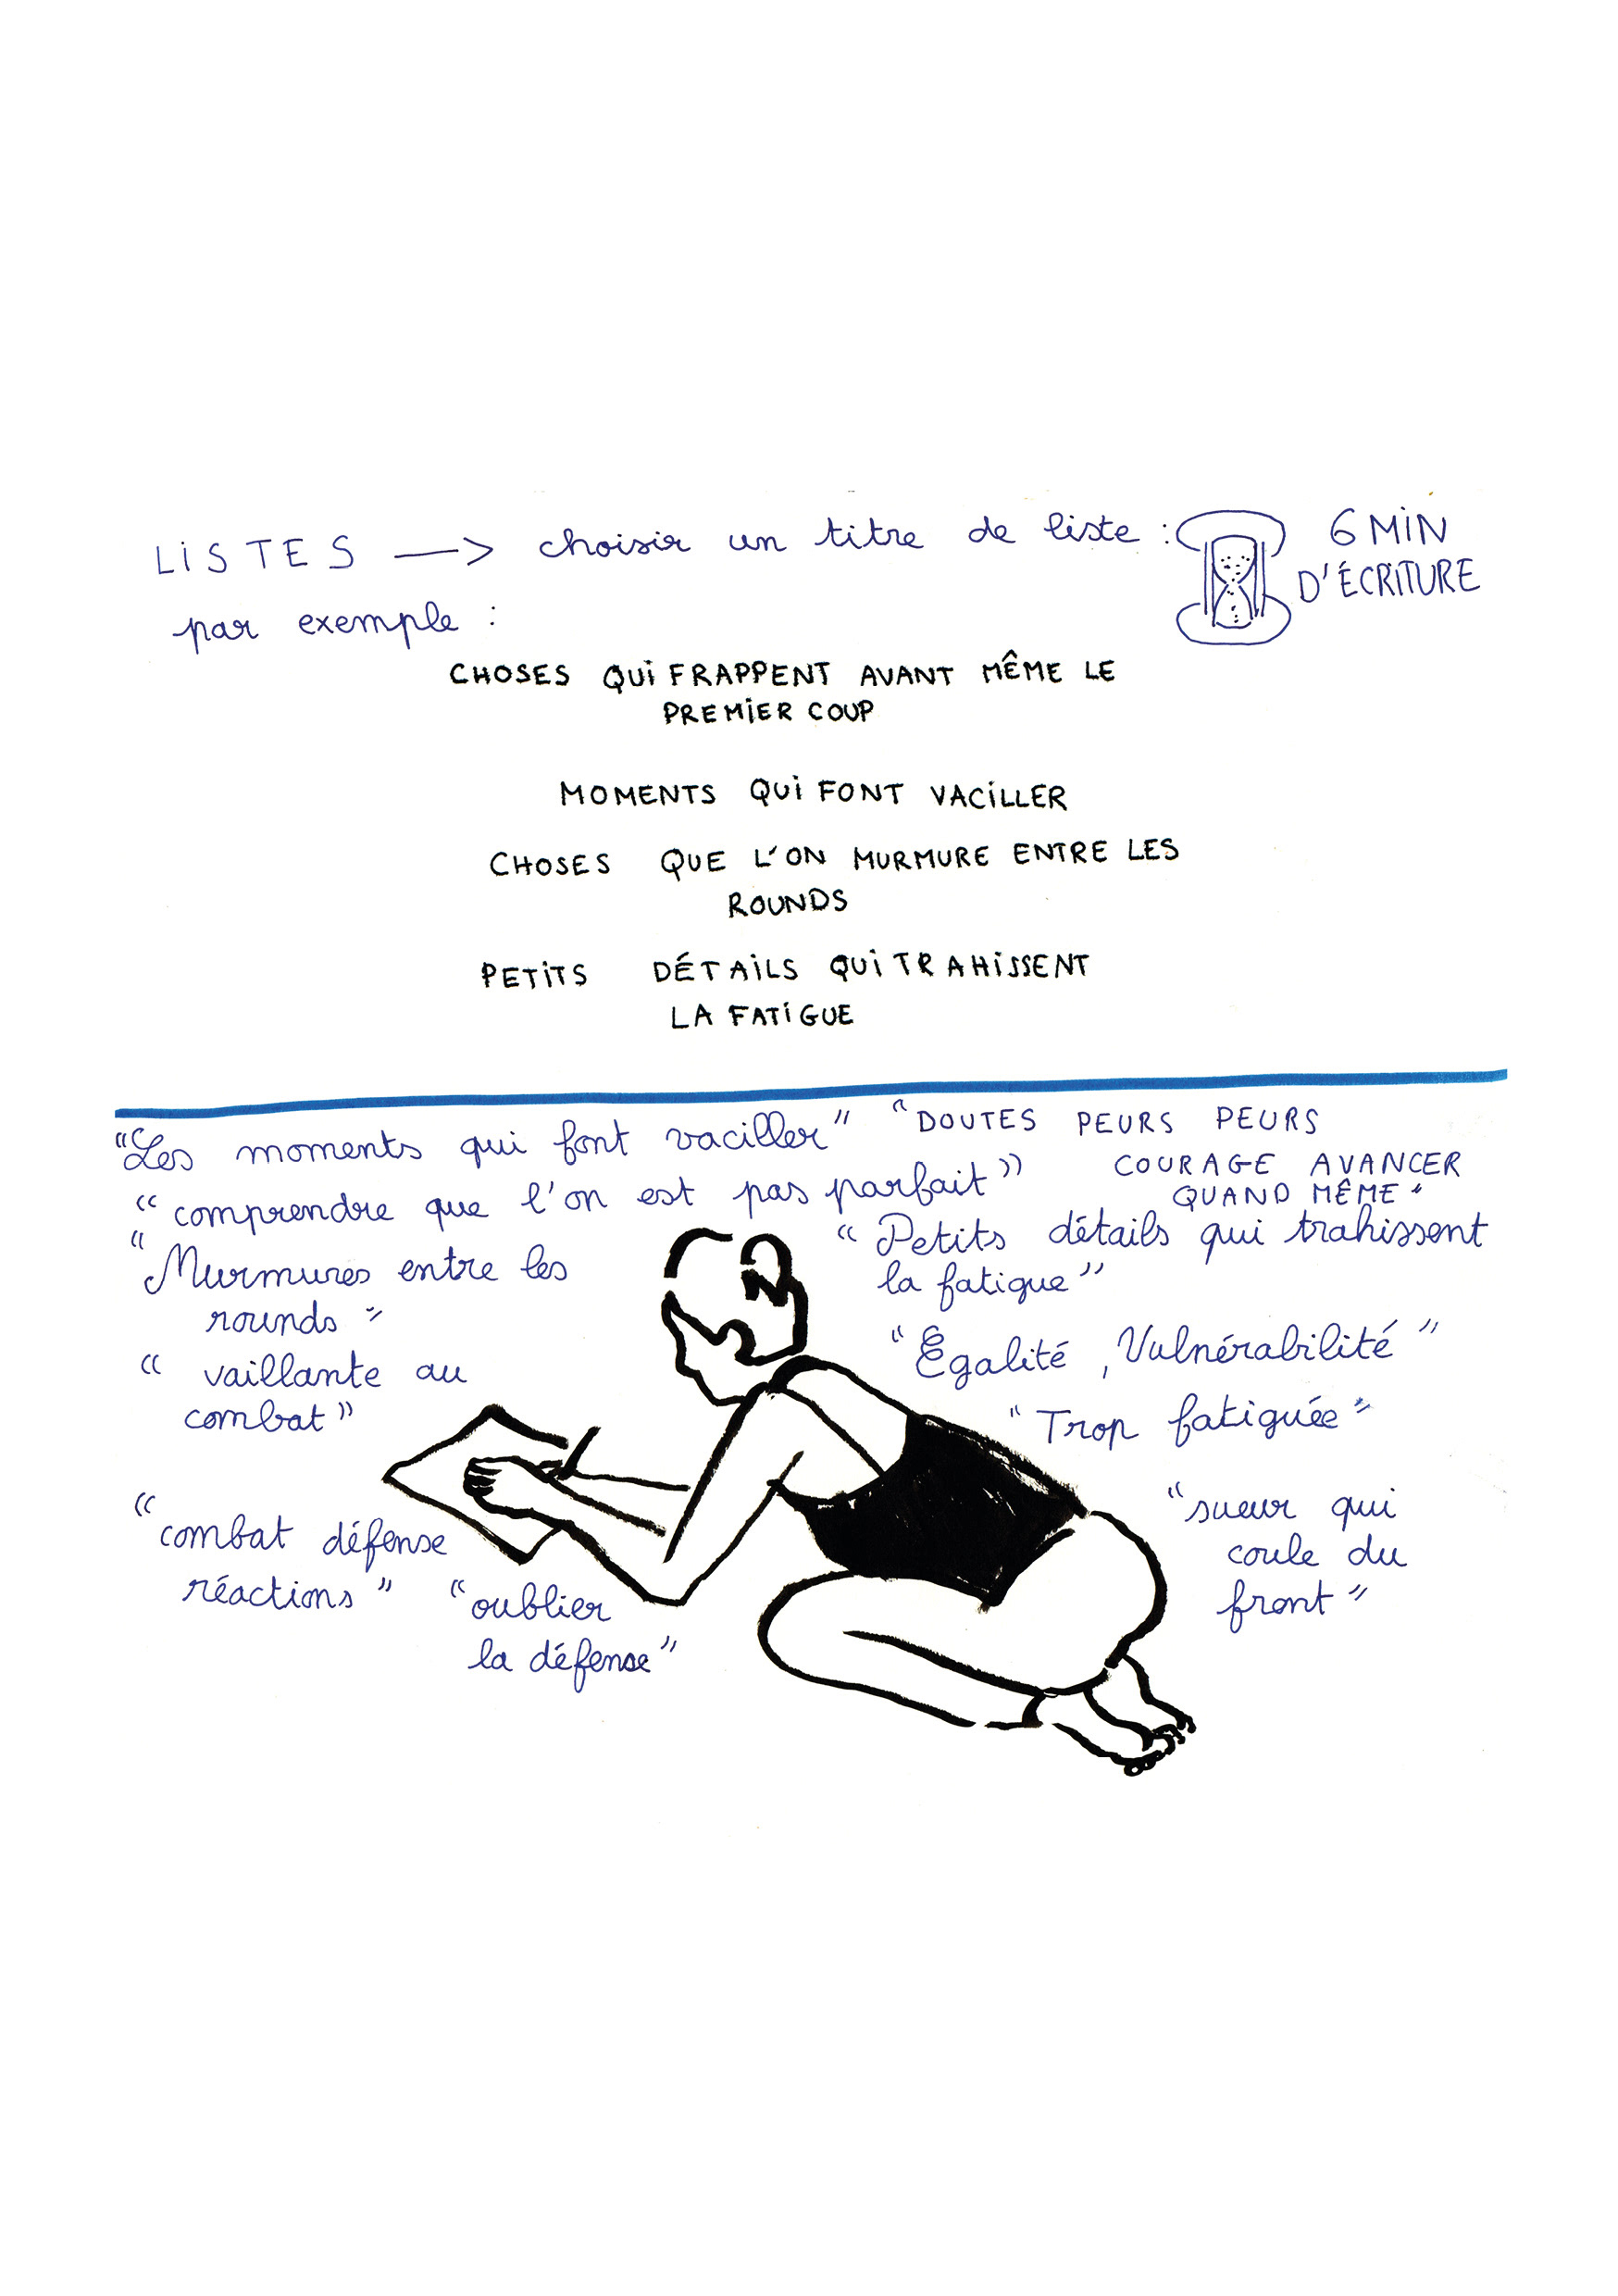 LISTES —> choisir un titre de liste :
6 MIN
D'ÉCRITURE
par exemple :
CHOSES QUI FRAPPENT AVANT MÊME LE
PREMIER COUP
MOMENTS QUI FONT VACILLER
CHOSES QUE L'ON MURMURE ENTRE LES
ROUNDS
PETITS DÉTAILS QUI TRAHISSENT
LA FATIGUE
"Les moments qui font vaciller"
"DOUTES PEURS PEURS
COURAGE AVANCER
QUAND MÊME"
"comprendre que l'on est pas parfait"
"Murmures entre les
rounds"
"Petits détails qui trahissent
la fatigue"
"vaillante au
combat"
"Égalité, Vulnérabilité"
"Trop fatiguée"
"combat défense
réactions"
"oublier
la défense"
"sueur qui
coule du
front"